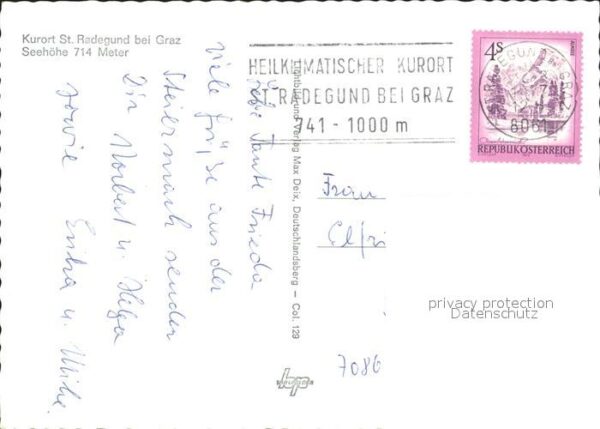 Kurort St. Radegund bei Graz
Seehöhe 714 Meter
HEILKLIMATISCHER KURORT
ST. RADEGUND BEI GRAZ
741 - 1000 m
4S
8061
REPUBLIK ÖSTERREICH
Liebe Tante Frieda
viele Grüße aus der
Steiermark senden
Dir Norbert u. Helga
sowie Erika u.
Lichtbild und Verlag Max Deix, Deutschlandsberg — Col. 129
Frau
Elfri
privacy protection
Datenschutz
7086